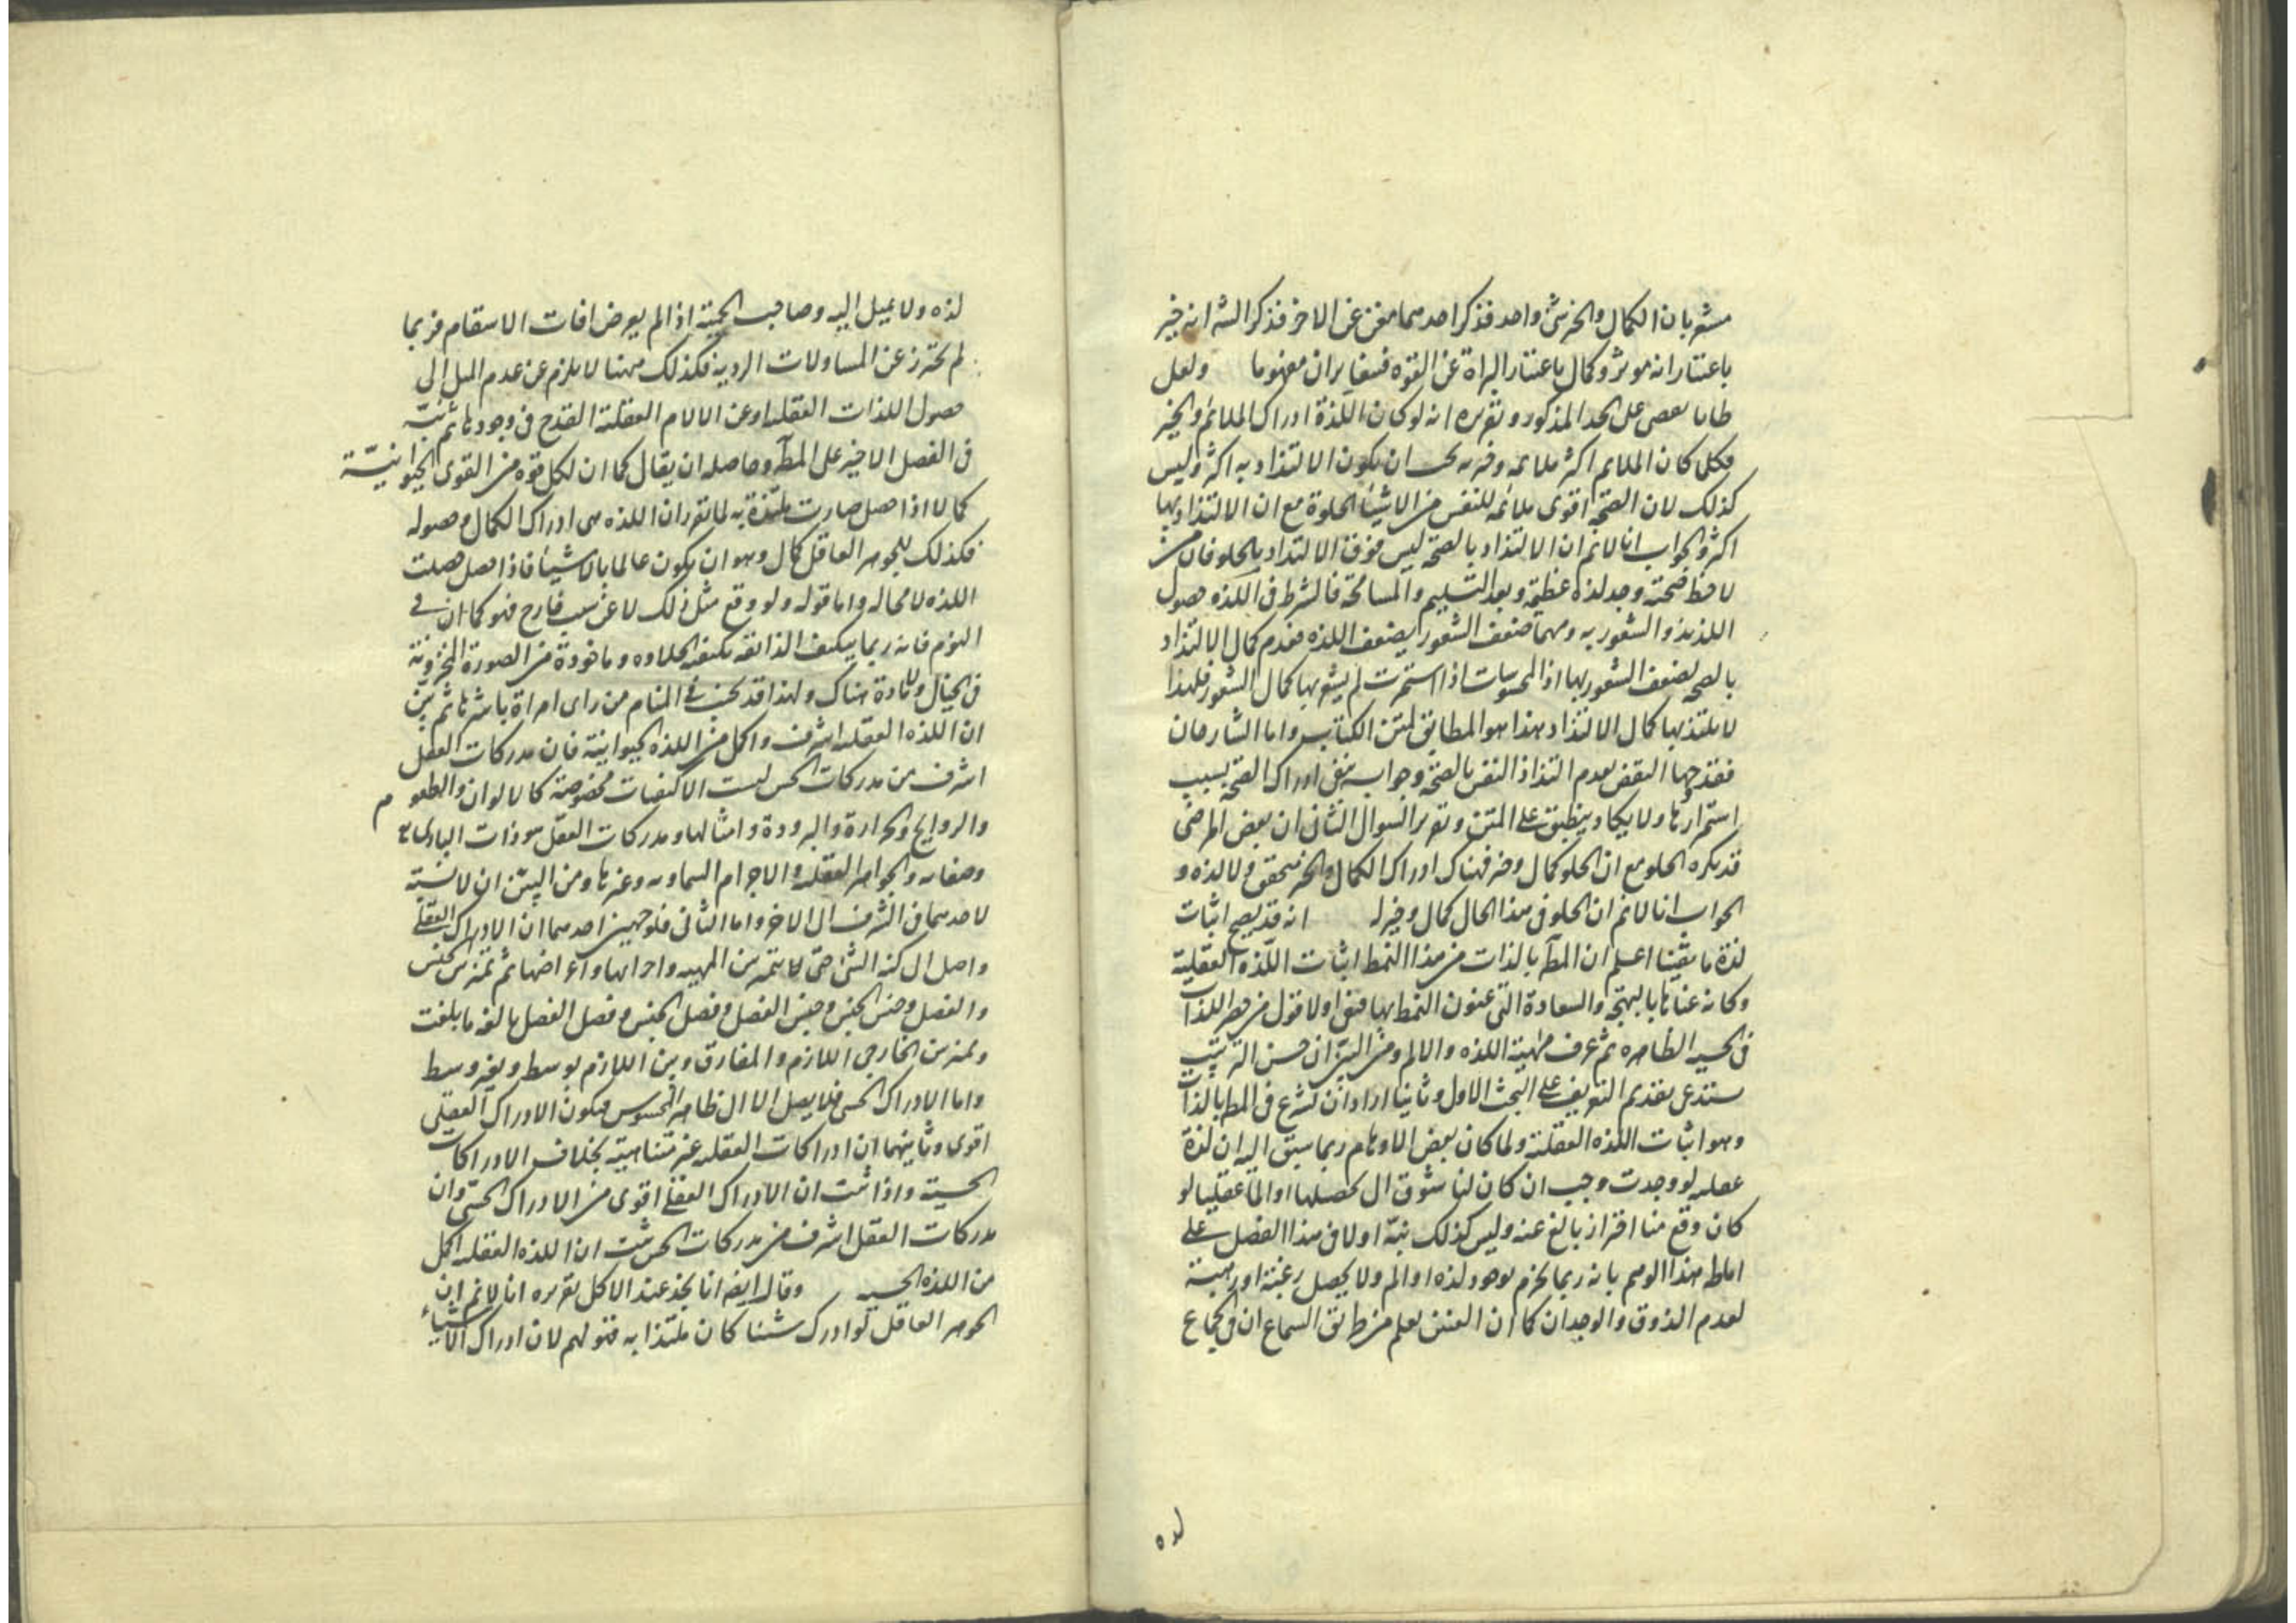 مشعر بان الكمال والخير شئ واحد فذكر احدهما مغن عن الاخر فذكر الشه انه خير
باعتبار انه موثر وكمال باعتبار البراة عن القوه فيتغايران مفهوما ولعل
ظانا على الحد المذكور وتقريره انه لو كان اللذة ادراك الملائم والخير
فكل كان الملايم اكثر ملايمه يجب ان يكون الالتذاذ به اكثر وليس
كذلك لان الصحة اقوى ملائمة للنفس من الاشياء الحلوة مع ان الالتذاذ بها
اكثر والجواب انا لانم ان الالتذاذ بالصحة ليس فوق الالتذاذ بالحلو فان من
لاحظ صحته وجد لذه عظيمة وبعد التسليم والمسامحة فالشرط فى اللذه حصول
اللذيذ والشعور به ومهما ضعف الشعور يضعف اللذه فعدم كمال الالتذاذ
بالصحه لضعف الشعور بها اذ المحسوسات اذا استمرت لم يشعر بها كمال الشعور فلهذا
لا يلتذ بها كمال الالتذاذ هذا هو المطابق لمتن الكتاب واما الشارحان
فقد وجها النقض بعدم التذاذ النفس بالصحة وجوابه بنفى ادراك الصحة بسبب
استمرارها ولا يكاد ينطبق على المتن وتقرير السوال الثانى ان بعض المرضى
قد يكره الحلو مع ان الحلو كمال وخير فهناك ادراك الكمال والخير متحقق ولا لذه و
الجواب انا لانم ان الحلو فى هذا الحال كمال وخير له انه قد يصح اثبات
لذة ما يقينا اعلم ان المط بالذات من هذا النمط اثبات اللذه العقلية
وكانه عناها بالبهجة والسعادة التى عنون النمط بها فنفى اولا قول من حصر اللذات
فى الحسيه الظاهره ثم عرف مهية اللذه والالم ومن البين ان حسن الترتيب
يستدعى تقديم التعريف على البحث الاول وثانيا اراد ان يشرع فى المط بالذات
وهو اثبات اللذه العقلية ولما كان بعض الاوهام ربما سبق اليه ان لذة
عقليه لو وجدت وجب ان كان لنا شوق الى تحصيلها او الما عقليا لو
كان وقع منا احتراز بالغ عنه وليس كذلك نبه اولا فى هذا الفصل على
اماطه هذا الوهم بانه ربما يجزم بوجود لذه او الم ولا يحصل رغبة او رهبة
لعدم الذوق والوجدان كما ان العنين يعلم من طريق السماع ان فى الجماع
لذه
لذه ولا يميل اليه وصاحب الحمية اذا لم يعرض افات الاسقام فربما
لم يحترز عن المتناولات الرديه فكذلك ههنا لا يلزم عن عدم الميل الى
حصول اللذات العقليه او عن الالام العقلية القدح فى وجودها ثم نبه
فى الفصل الاخير على المط وحاصله ان يقال كما ان لكل قوه من القوى الحيوانية
كمالا اذا حصل صارت ملتذة به لما تقرر ان اللذه هى ادراك الكمال وحصوله
فكذلك للجوهر العاقل كمال وهو ان يكون عالما بالاشياء فاذا حصل حصلت
اللذه لا محاله واما قوله ولو وقع مثل ذلك لا عن سبب خارج فهو كما ان فى
النوم فانه ربما يتكيف الذائقه بكيفية الحلاوه وماخوذة من الصورة المخزونة
فى الخيال ولا مادة هناك ولهذا قد فى المنام من راى امراة باشرها ثم بين
ان اللذه العقليه اشرف واكمل من اللذه الحيوانية فان مدركات العقل
اشرف من مدركات الحس ليست الا كيفيات مخصوصة كالالوان والطعوم
والروايح والحرارة والبرودة وامثالها ومدركات العقل هو ذات البارى تع
وصفاته والجواهر العقليه والاجرام السماويه وغيرها ومن البين ان لا نسبة
لاحدهما فى الشرف الى الاخر واما الثانى فلوجهين احدهما ان الادراك العقلى
واصل الى كنه الشئ حتى يتميز بين المهيه واجزائها واعراضها ثم تميز بين الجنس
والفصل وجنس الجنس وجنس الفصل وفصل الجنس وفصل الفصل بالغه ما بلغت
وتميز بين الخارجى اللازم والمفارق وبين اللازم بوسط وبغير وسط
واما الادراك الحسى فلا يصل الا الى ظاهر المحسوس فيكون الادراك العقلى
اقوى وثانيهما ان ادراكات العقليه غير متناهية بخلاف الادراكات
الحسية واذا ثبت ان الادراك العقلى اقوى من الادراك الحسى وان
مدركات العقل اشرف من مدركات الحس ثبت ان اللذه العقليه اكمل
من اللذه الحسيه وقال ايضه انا نجد عند الاكل تقريره انا لانم ان
الجوهر العاقل لو ادرك شيئا كان ملتذا به قولهم لان ادراك الاشياء